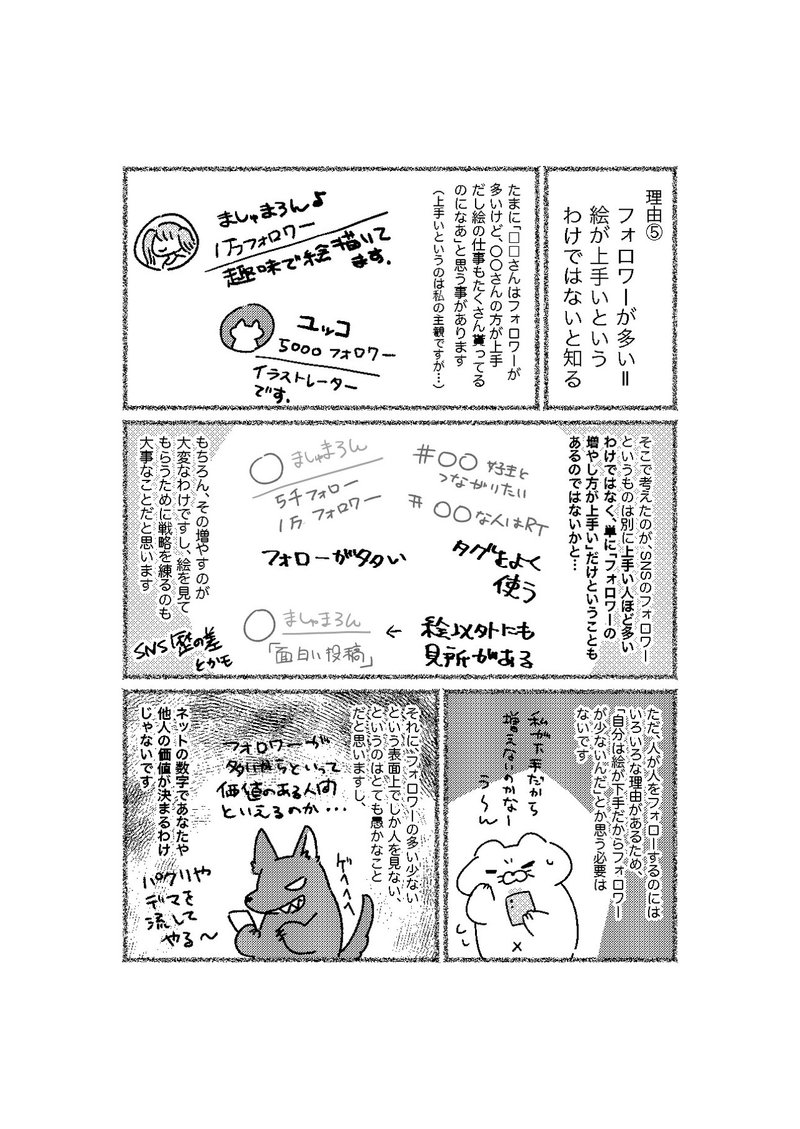 理由⑤
フォロワーが多い＝
絵が上手いという
わけではないと知る
たまに「□□さんはフォロワーが
多いけど、○○さんの方が上手
だし絵の仕事もたくさん貰ってる
のになあ」と思う事があります
（上手いというのは私の主観ですが…）
ましゅまろん♪
1万フォロワー
趣味で絵描いて
ます.
ユッコ
5000フォロワー
イラストレーター
です.
そこで考えたのが、SNSのフォロワー
というものは別に上手い人ほど多い
わけではなく、単に「フォロワーの
増やし方が上手い」だけということも
あるのではないかと…
#○○好きと
つながりたい
#○○な人はRT
タグをよく
使う
ましゅまろん
5千フォロー
1万フォロワー
フォローが多い
絵以外にも
見所がある
←
ましゅまろん
「面白い投稿」
もちろん、その増やすのが
大変なわけですし、絵を見て
もらうために戦略を練るのも
大事なことだと思います
SNS歴の差
とかも
ただ、人が人をフォローするのには
いろいろな理由があるため、
「自分は絵が下手だからフォロワー
が少ないんだ」とか思う必要は
ないです
私が下手だから
増えないのかなー
う〜ん
それに「フォロワーの多い少ない
という表面上でしか人を見ない、
というのはとても愚かなこと
だと思いますし、
フォロワーが
多いからといって
価値のある人間
といえるのか・・・
ネットの数字であなたや
他人の価値が決まるわけ
じゃないです
ゲヘヘヘ
パクリや
デマを
流して
やる〜